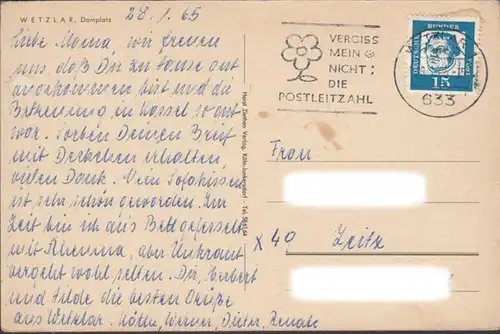 WETZLAR, Domplatz
28.1.65
Liebe Mama, wir freuen
uns, daß Du zu Hause gut
angekommen bist und die
Betreuung in Kassel so gut
war. Soeben Deinen Brief
mit Deckchen erhalten,
vielen Dank. Mein Sofakissen
ist sehr schön geworden. Zur
Zeit bin ich ans Bett gefesselt
mit Rheuma, aber Unkraut
vergeht wohl selten. Dir, Herbert
und Hilde die besten Grüße
aus Wetzlar. Werner, Dieter, Renate
Horst Ziethen Verlag, Köln-Junkersdorf - Tel.
VERGISS
MEIN
NICHT:
DIE
POSTLEITZAHL
DEUTSCHE BUNDESPOST
15
633
Frau
x 40 Zeitz